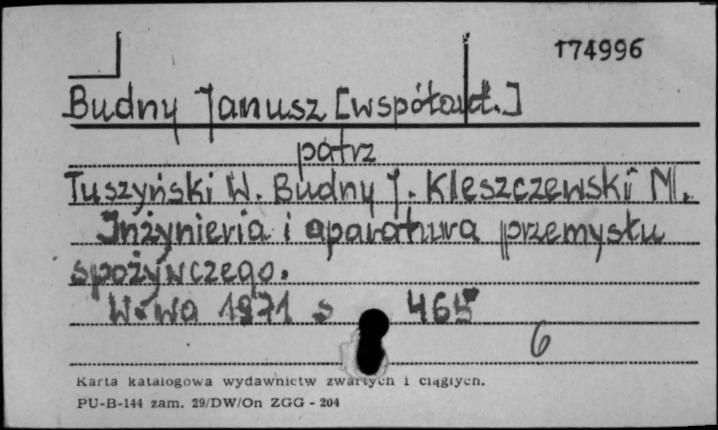 174996
Budny Janusz [współaut.]
patrz
Tuszyński W. Budny J. Kleszczewski M.
Inżynieria i aparatura przemysłu
spożywczego.
W-wa 1971 s 465
6
Karta katalogowa wydawnictw zwartych i ciągłych.
PU-B-144 zam. 29/DW/On ZGG - 204